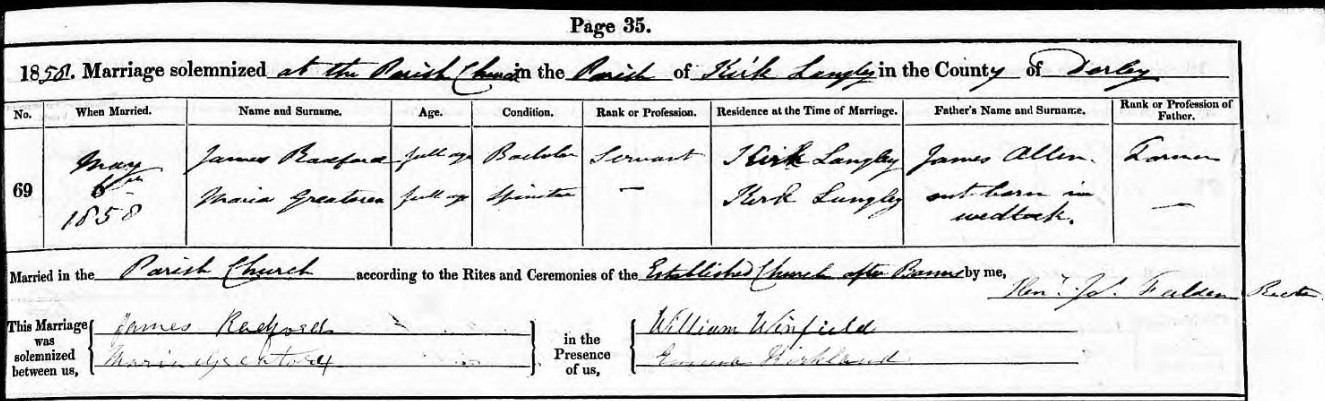 Page 35.
1858. Marriage solemnized at the Parish Church in the Parish of Kirk Langley in the County of Derby
No. When Married. Name and Surname. Age. Condition. Rank or Profession. Residence at the Time of Marriage. Father's Name and Surname. Rank or Profession of Father.
69 May 6th 1858 James Radford full age Bachelor Servant Kirk Langley James Allen. Farmer
Maria Greatorex full age Spinster — Kirk Langley not born in wedlock. —
Married in the Parish Church according to the Rites and Ceremonies of the Established Church after Banns by me,
Henry Jn. Feilden Rector
This Marriage was solemnized between us, James Radford in the Presence of us, William Winfield
Maria Greatorex Emma Kirkland